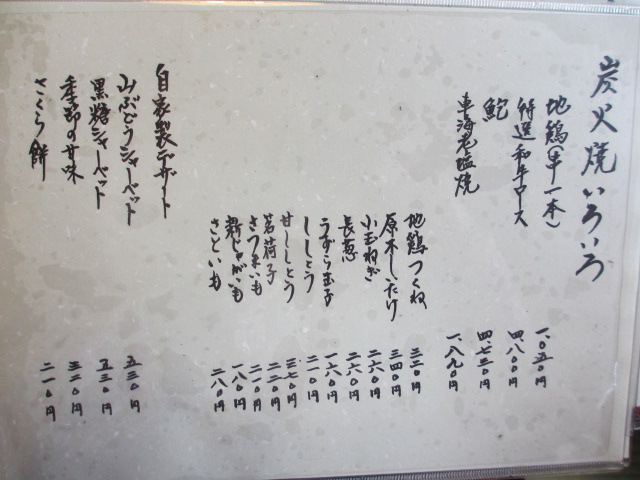 炭火焼いろいろ
地鶏(串一本) 一、〇五〇円
特選和牛ロース 四、八〇〇円
鮑 四、七二五〇円
車海老塩焼 一、八九〇円
地鶏つくね 三二〇円
原木しいたけ 三四〇円
小玉ねぎ 二六〇円
長葱 二六〇円
うずら玉子 一六〇円
ししとう 二一〇円
甘ししとう 三七〇円
茗荷子 二二〇円
さつまいも 二一〇円
新じゃがいも 一八〇円
さといも 二八〇円
自家製デザート
山ぶどうシャーベット 五三〇円
黒糖シャーベット 五三〇円
季節の甘味 三二〇円
さくら餅 二一〇円